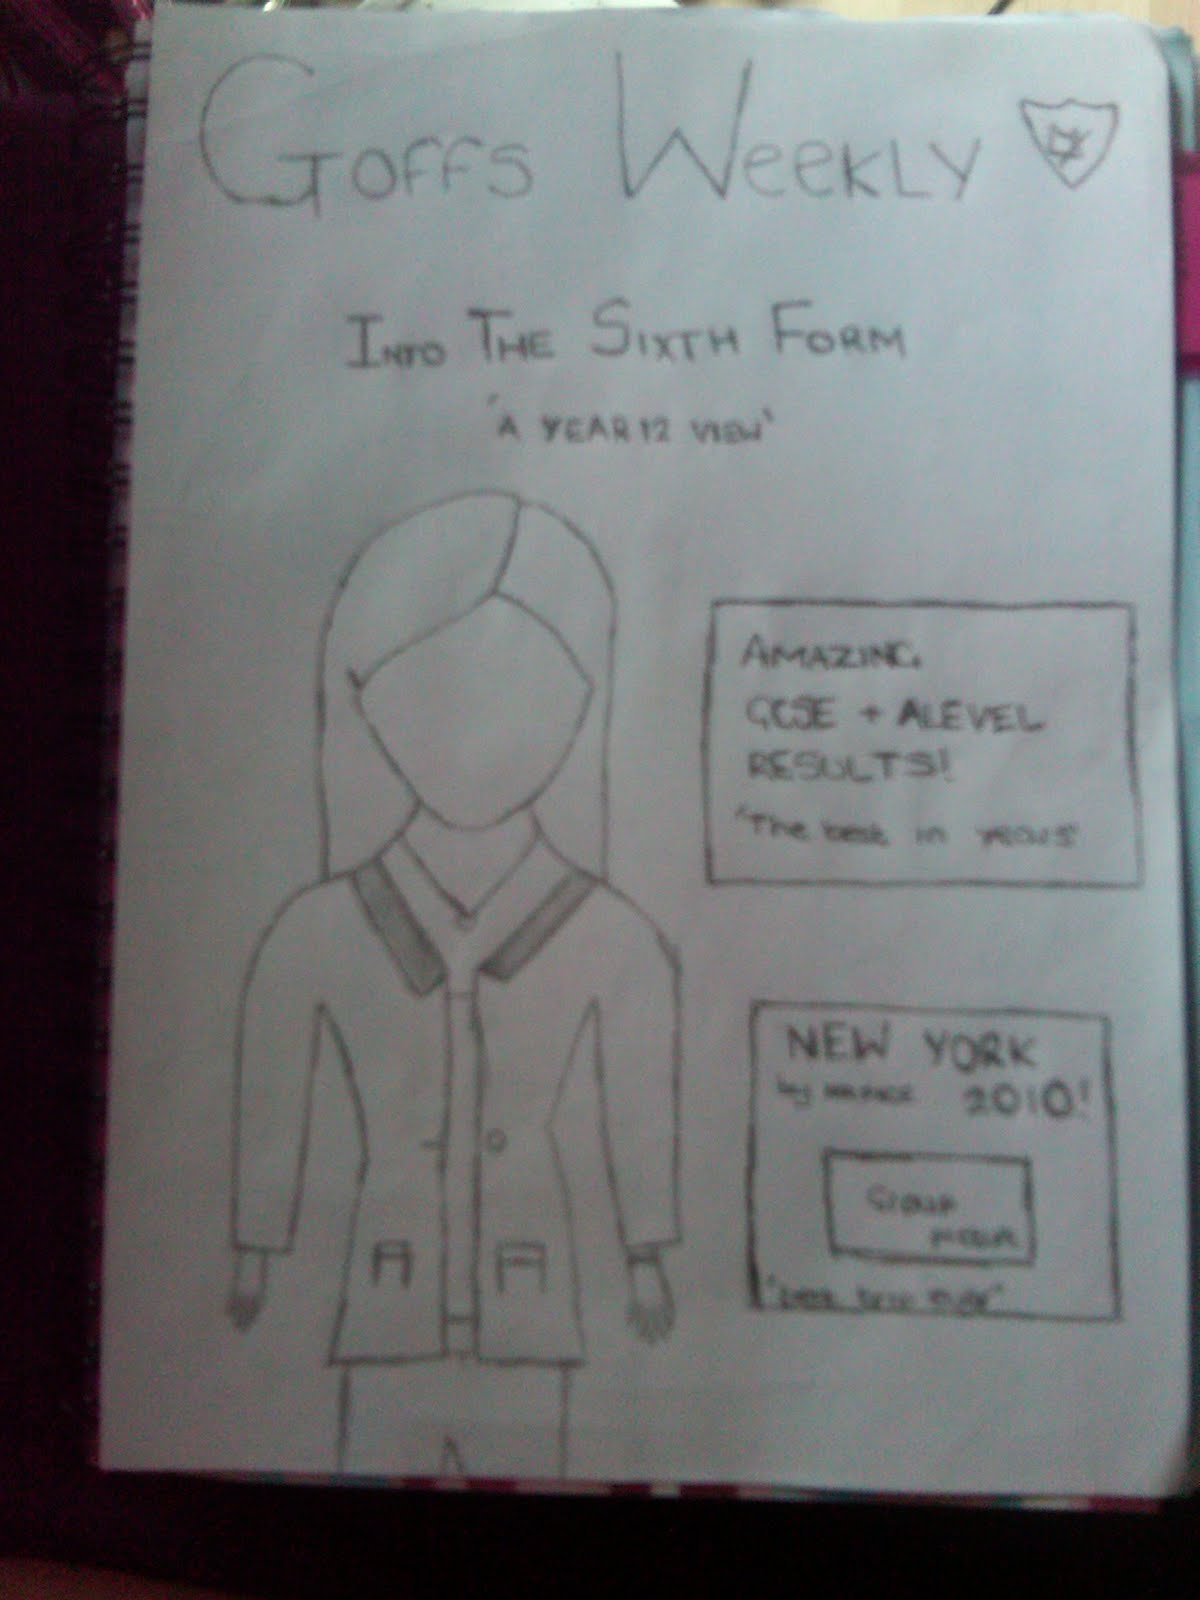 GOFFS WEEKLY
INTO THE SIXTH FORM
'A YEAR 12 VIEW'
AMAZING
GCSE + ALEVEL
RESULTS!
'The best in years
NEW YORK
by 2010!
GROUP
"best trip ever"